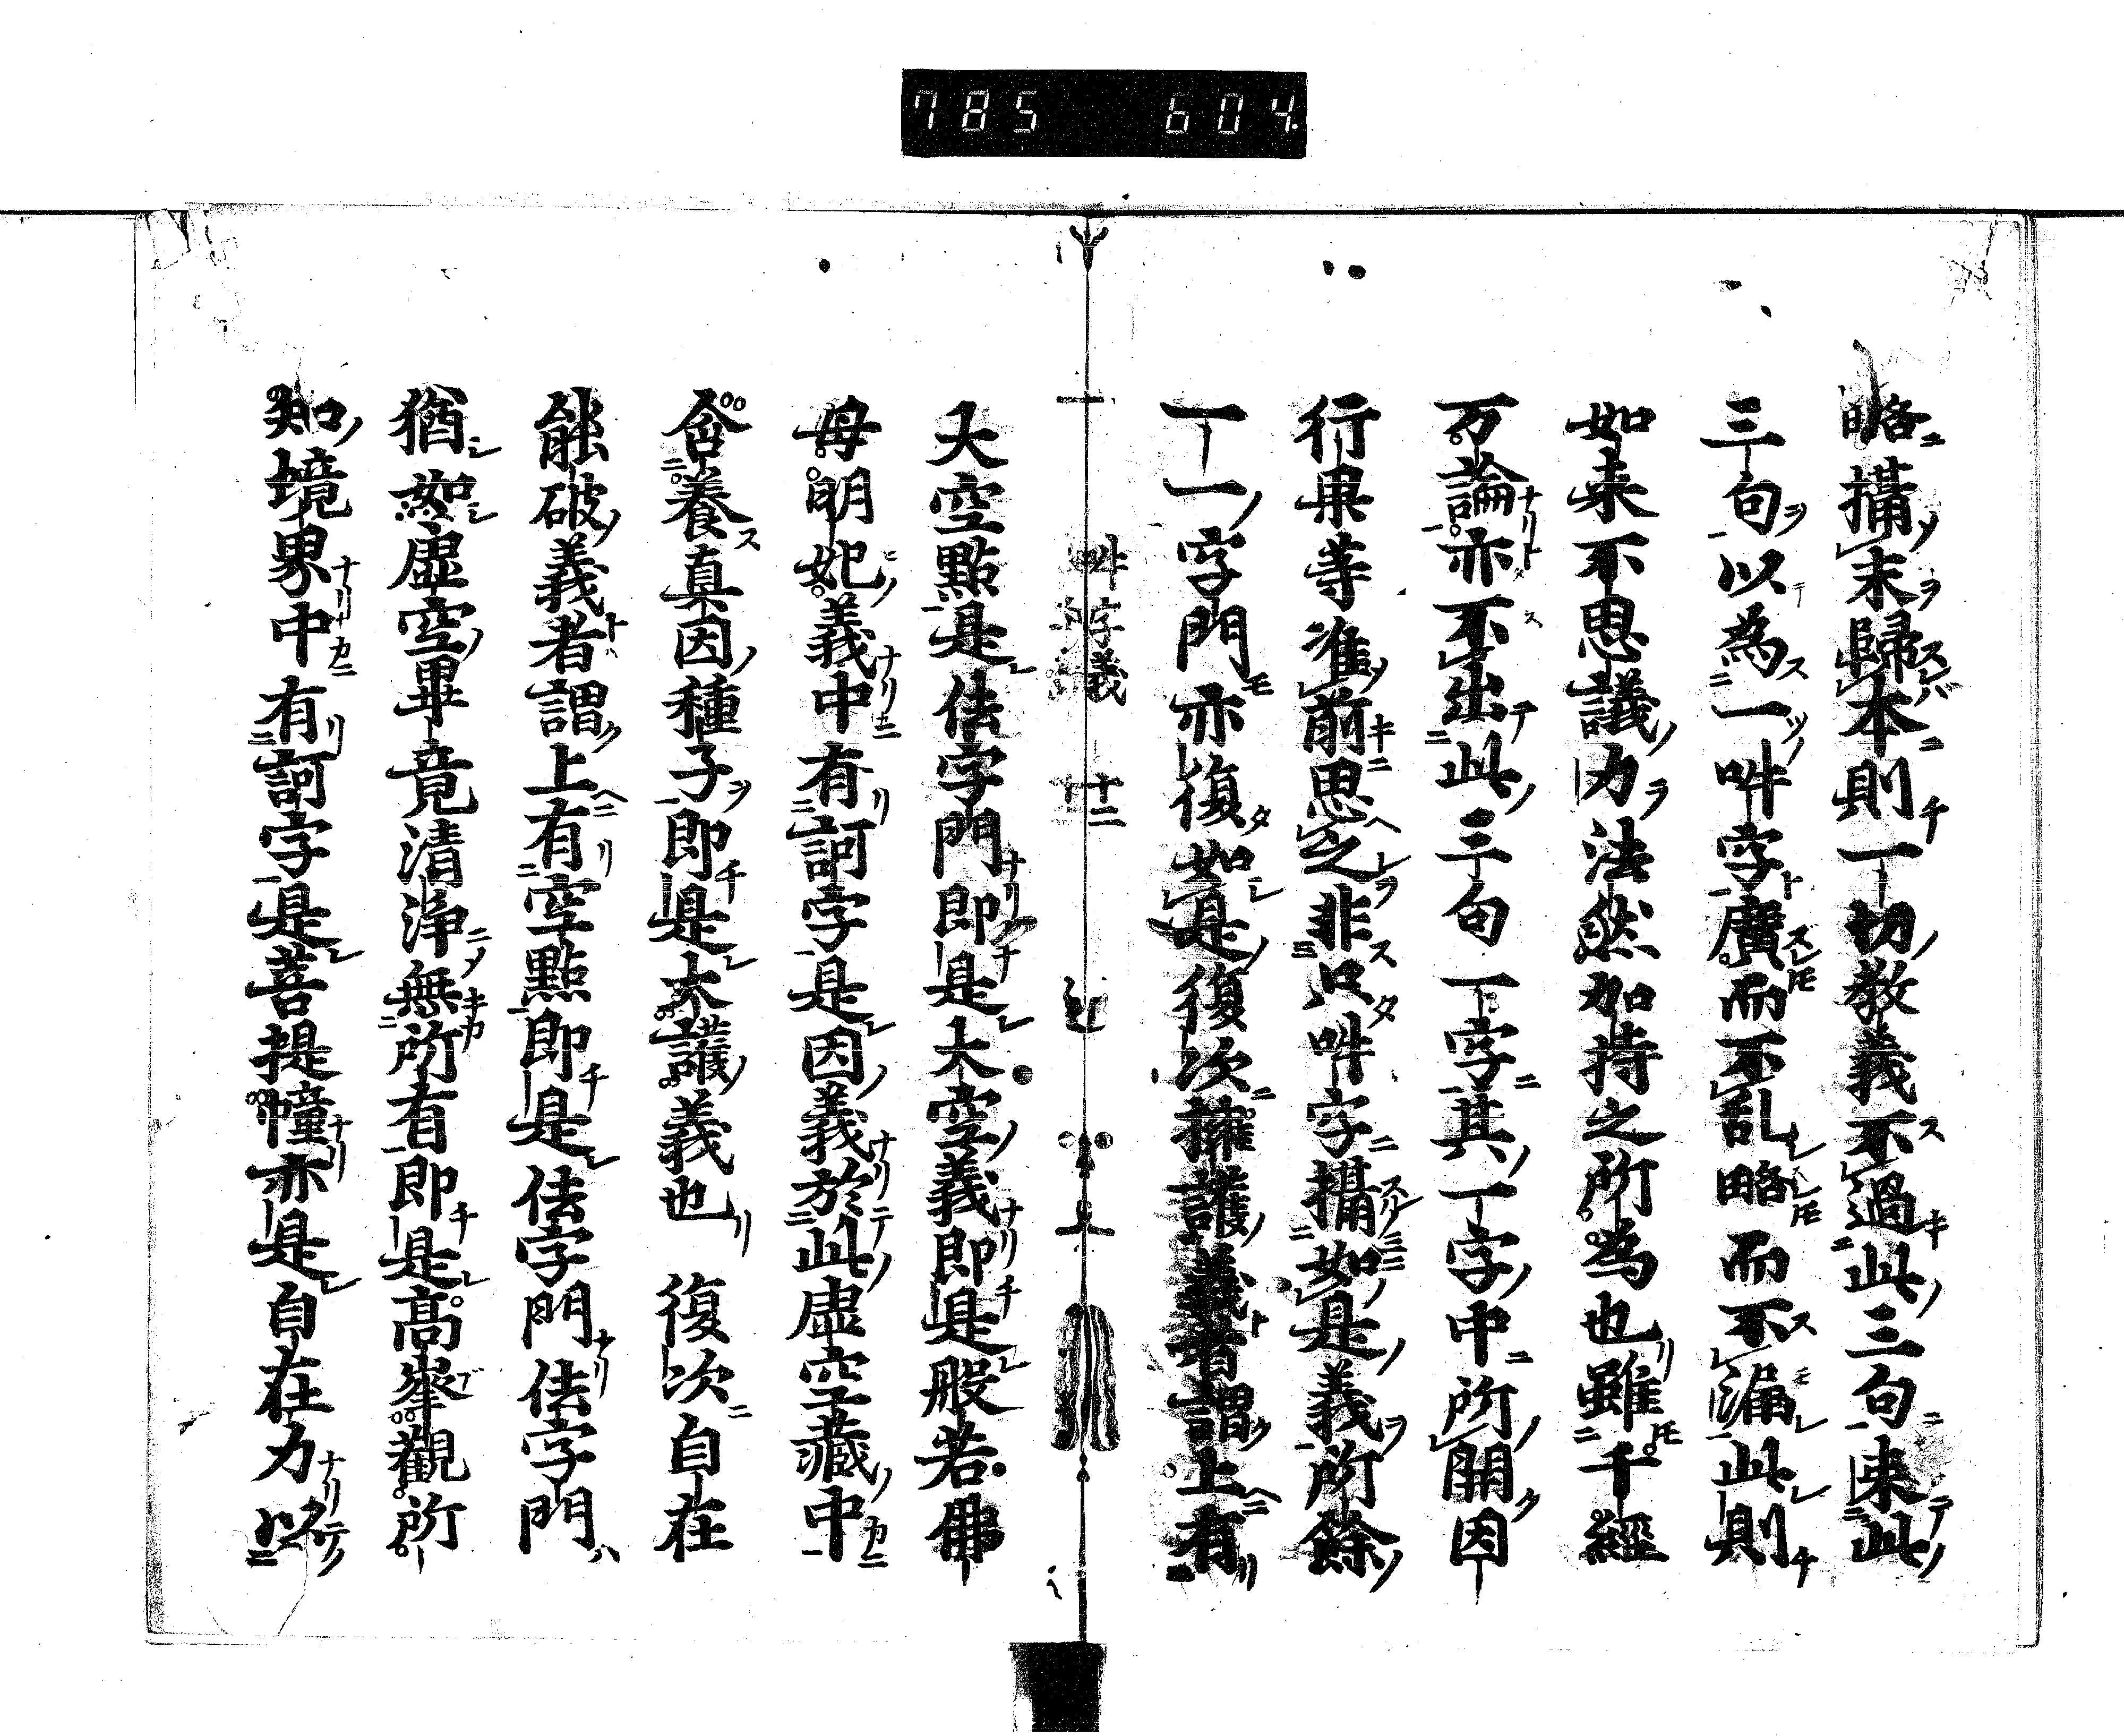 785 604
略攝末歸本則一切教義不過此三句束此
三句以為一吽字廣而不乱略而不漏此則
如来不思議力法然加持之所為也雖千經
万論亦不出此三句一字其一字中所開因
行果等准前思之非只吽字攝如是義所餘
一一字門亦復如是復次擁護義者謂上有
吽字義 十二
大空點是佉字門即是大空義即是般若佛
母明妃義中有訶字是因義於此虚空藏中
含養真因種子即是大護義也 復次自在
能破義者謂上有空點即是佉字門佉字門
猶如虚空畢竟清浄無所有即是高峯觀所
知境界中有訶字是菩提幢亦是自在力以